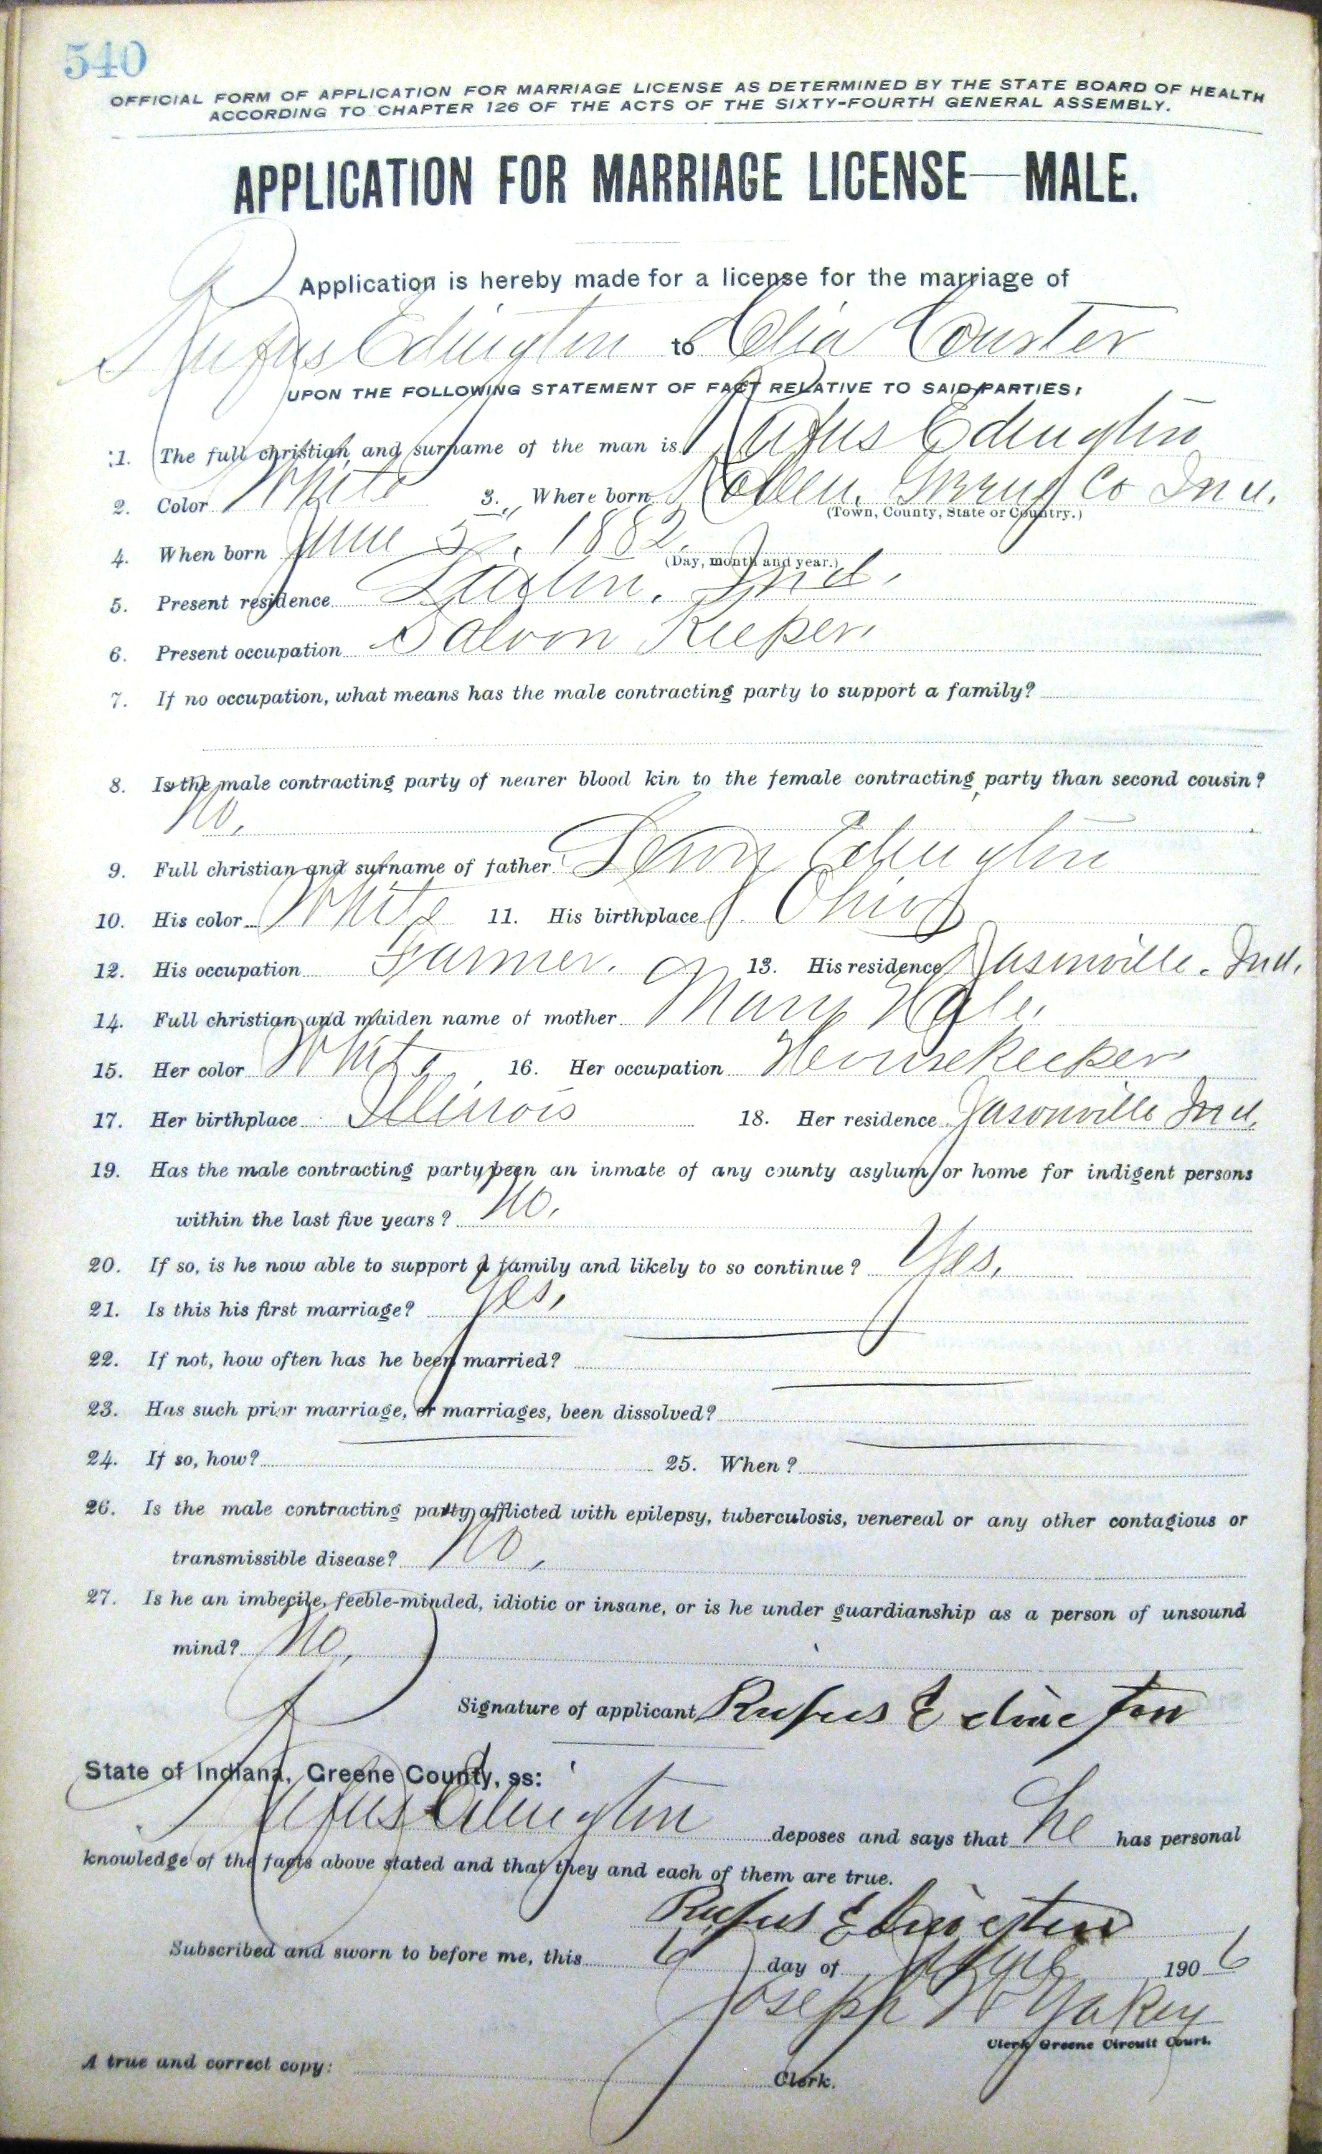 540
OFFICIAL FORM OF APPLICATION FOR MARRIAGE LICENSE AS DETERMINED BY THE STATE BOARD OF HEALTH
ACCORDING TO CHAPTER 126 OF THE ACTS OF THE SIXTY-FOURTH GENERAL ASSEMBLY.
APPLICATION FOR MARRIAGE LICENSE—MALE.
Application is hereby made for a license for the marriage of
Rufus Edington to Courter
UPON THE FOLLOWING STATEMENT OF FACT RELATIVE TO SAID PARTIES:
1. The full christian and surname of the man is Rufus Edington
2. Color White 3. Where born Co Ind.
(Town, County, State or Country.)
4. When born June 5, 1882.
(Day, month and year.)
5. Present residence Ind.
6. Present occupation Saloon Keeper.
7. If no occupation, what means has the male contracting party to support a family?
8. Is the male contracting party of nearer blood kin to the female contracting party than second cousin?
No.
9. Full christian and surname of father Edington
10. His color White 11. His birthplace Ohio
12. His occupation Farmer. 13. His residence Jasonville. Ind.
14. Full christian and maiden name of mother Mary Hale.
15. Her color White 16. Her occupation Housekeeper
17. Her birthplace Illinois 18. Her residence Jasonville Ind.
19. Has the male contracting party been an inmate of any county asylum or home for indigent persons
within the last five years? No.
20. If so, is he now able to support a family and likely to so continue? Yes.
21. Is this his first marriage? Yes.
22. If not, how often has he been married?
23. Has such prior marriage, or marriages, been dissolved?
24. If so, how? 25. When?
26. Is the male contracting party afflicted with epilepsy, tuberculosis, venereal or any other contagious or
transmissible disease? No.
27. Is he an imbecile, feeble-minded, idiotic or insane, or is he under guardianship as a person of unsound
mind? No.
Signature of applicant Rufus Edington
State of Indiana, Greene County, ss:
Rufus Edington deposes and says that he has personal
knowledge of the facts above stated and that they and each of them are true.
Rufus Edington
Subscribed and sworn to before me, this 6 day of 1906
Joseph W Yakey
Clerk Greene Circuit Court.
A true and correct copy: Clerk.